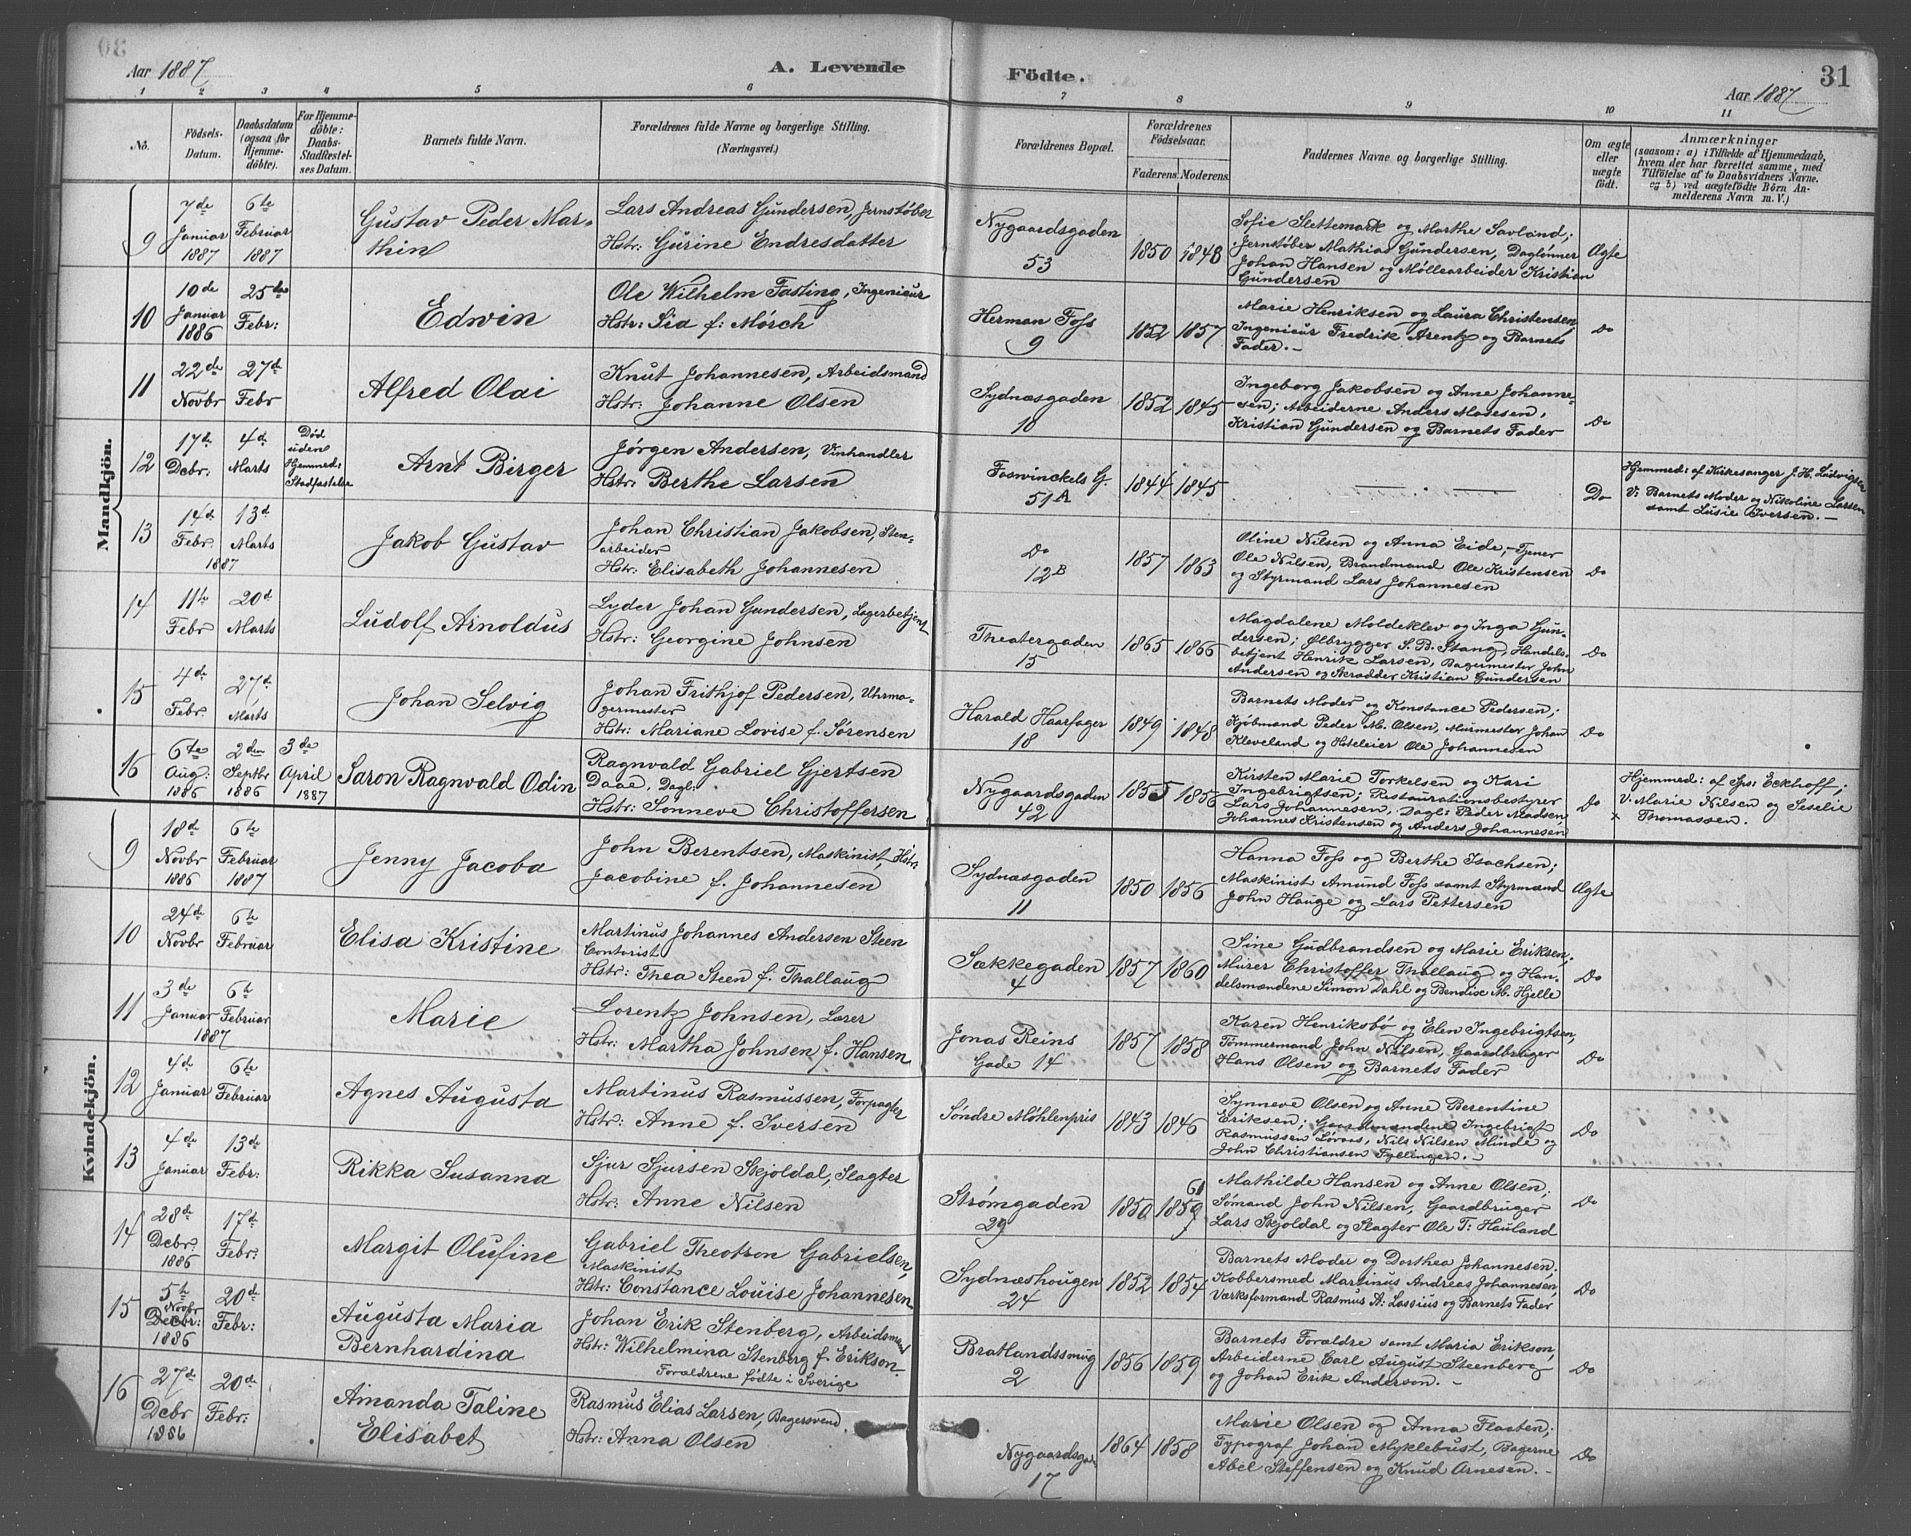 Aar 1887
A. Levende Födte.
Aar 1887
31
No.
Födsels-Datum.
Daabsdatum (ogsaa for Hjemmedöbte).
For Hjemmedöbte: Daabs-Stadfæstelses Datum.
Barnets fulde Navn.
Forældrenes fulde Navne og borgerlige Stilling.
(Næringsvei.)
Forældrenes Bopæl.
Forældrenes Födselsaar.
Faderens. Moderens.
Faddernes Navne og borgerlige Stilling.
Om ægte eller uægte födt.
Anmærkninger
(saasom: a) i Tilfælde af Hjemmedaab, hvem der har forrettet samme, med Tilföielse af to Daabsvidners Navne, og b) ved uægtefödte Börn Anmelderens Navn m. V.)
Mandkjön.
9 7de Januar 1887 6te Februar 1887 Gustav Peder Marthin
Lars Andreas Gundersen, Jernstøber
Hstr: Gurine Endresdatter
Nygaardsgaden 53 1850 1848
Sofie Slettemark og Marthe Savland;
Jernstøber Mathias Gundersen, Daglønner
Johan Hansen og Møllearbeider Kristian
Gundersen
Ægte
10 10de Januar 1886 25de Febr: Edwin
Ole Wilhelm Fasting, Ingeniør
Hstr: Sia f: Mørch
Herman Foss 9 1852 1857
Marie Henriksen og Laura Christensen,
Ingeniør Fredrik Arentz og Barnets
Fader.-
Do
11 22de Novbr 27de Febr Alfred Olai
Knut Johannesen, Arbeidsmand
Hstr: Johanne Olsen
Sydnæsgaden 10 1852 1845
Ingeborg Jakobsen og Anne Johannesen;
Arbeiderne Anders Madesen,
Kristian Gundersen og Barnets Fader
Do
12 17de Dcbr: 4d Marts Død uden Hjemmed: Stadfæstelse Arnt Birger
Jørgen Andersen, Vinhandler
Hstr: Berthe Larsen
Foswinckels G. 51A 1844 1845
Do
Hjemmed: af Kirkesanger J. H. Ludvigsen
V: Barnets Moder og Nikoline Larsen
samt Lusie Iversen.-
13 14d Febr 13d Marts 1887 Jakob Gustav
Johan Christian Jakobsen, Stenarbeider
Hstr: Elisabeth Johannesen
Do 12B 1857 1863
Oline Nilsen og Anna Eide,- Tjener
Ole Nilsen, Brandmand Ole Kristensen
og Styrmand Lars Johannesen
Do
14 11te Febr 20d Marts Ludolf Arnoldus
Lyder Johan Gundersen, Lagerbetjent
Hstr: Georgine Johnsen
Theatergaden 15 1865 1866
Magdalene Moldeklev og Inga Gundersen;
Ølbrygger S. B. Stang, Handelsbetjent
Henrik Larsen, Bagermester John
Andersen og Skrædder Kristian Gundersen
Do
15 4de Febr. 27d Marts Johan Selvig
Johan Frithjof Pedersen, Uhrmagermester
Hstr: Mariane Lovise f. Sørensen
Harald Haarfager 18 1849 1848
Barnets Moder og Konstance Pedersen;
Kjøbmand Peder M. Olsen, Murmester Johan
Kleveland og Hoteleier Ole Johannesen
Do
16 6te Aug: 1886 2den Septbr 1886 3de April 1887 Saron Ragnvald Odin
Ragnvald Gabriel Gjertsen
Daae, Dagl:
Hstr: Sønneve Christoffersen
Nygaardsgaden 42 1855 1856
Kirsten Marie Torkelsen og Kari
Ingebrigtsen; Restaurationsbestyrer
Lars Johannesen, Dagl: Peder Madsen,
Johannes Kristensen og Anders Johannesen
Do
Hjemmed: af Sps: Eckhoff;
V: Marie Nilsen og Seselie
x Thomassen.
Kvindekjön.
9 18d Novbr 1886 6te Februar 1887 Jenny Jacoba
John Berentsen, Maskinist, Hstr:
Jacobine f. Johannesen
Sydnæsgaden 11 1850 1856
Hanna Foss og Berthe Isachsen;
Maskinist Amund Foss samt Styrmænd
John Hauge og Lars Pettersen
Ægte
10 24de Novbr 6te Februar Elisa Kristine
Martinus Johannes Andersen Steen
Contorist
Hstr: Thea Steen f. Thallaug
Sækkegaden 4 1857 1860
Sine Gudbrandsen og Marie Eriksen;
Murer Christoffer Thallaug og Handelsmændene
Simon Dahl og Bendise M. Hjelle
Do
11 3de Januar 6te Februar 1887 Marie
Lorentz Johnsen, Lærer
Hstr: Martha Johnsen f. Hansen
Jonas Reins Gade 14 1857 1858
Karen Henriksbø og Elen Ingebrigtsen,
Tømmermand John Nilsen, Gaardbruger
Hans Olsen og Barnets Fader
Do
12 4d Januar 6te Februar Agnes Augusta
Martinus Rasmussen, Forpagter
Hstr: Anne f. Iversen
Søndre Møhlenpris 1843 1846
Synneve Olsen og Anne Berentine
Eriksen; Gaardmændene Ingebrigt
Rasmussen Løvaas, Nils Nilsen Minde og
John Christiansen Fyllingen.-
Do
13 4de Januar 13de Febr: Rikka Susanna
Sjur Sjursen Skjoldal, Slagter
Hstr: Anne Nilsen
Strømgaden 29 1850 1859 61
Mathilde Hansen og Anne Olsen;
Sømand John Nilsen, Gaardbruger
Lars Skjoldal og Slagter Ole T: Hauland
Do
14 28de Dcbr: 1886 17de Febr: Margit Olufine
Gabriel Theotron Gabrielsen,
Maskinist
Hstr: Constance Louise Johannesen
Sydnæshougen 24 1852 1854
Barnets Moder og Dorthea Johannesen;
Kobbersmed Martinus Andreas Johannesen,
Værksformand Rasmus A: Lassius og Barnets Fader
Do
15 5te Novbr Decbr: 1886 20de Febr: Augusta Maria Bernhardina
Johan Erik Stenberg, Arbeidsmand
Hstr: Wilhelmina Stenberg f. Erikson
Forældrene fødte i Sverige
Bratlandssmug 2 1856 1859
Barnets Forældre samt Maria Erikson,
Arbeiderne Carl August Steenberg
og Johan Erik Anderson.-
Do
16 27de Dcbr 1886 20de Febr: Amanda Taline Elisabet
Rasmus Elias Larsen, Bagersvend
Hstr: Anna Olsen
Nygaardsga: 17 1864 1858
Marie Olsen og Anna Flaaten;
Typograf Johan Myklebust, Bagerne
Abel Steffensen og Knud Arnesen.-
Do